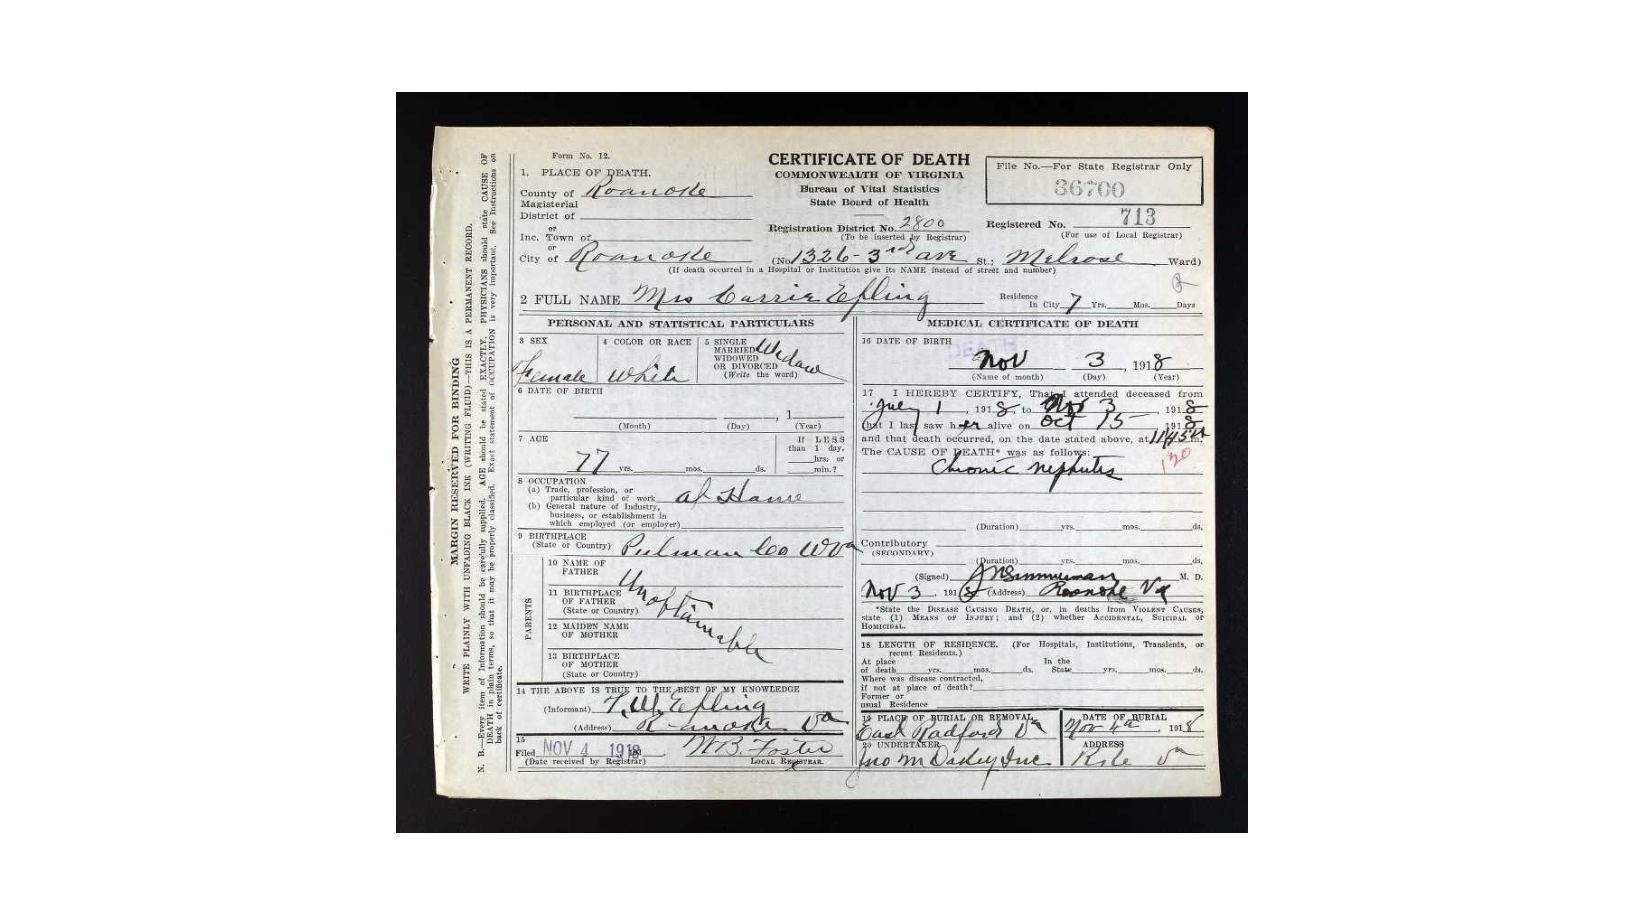 MARGIN RESERVED FOR BINDING
WRITE PLAINLY WITH UNFADING BLACK INK (WRITING FLUID)—THIS IS A PERMANENT RECORD.
N. B.—Every item of Information should be carefully supplied. AGE should be stated EXACTLY. PHYSICIANS should state CAUSE OF
DEATH in plain terms, so that it may be properly classified. Exact statement of OCCUPATION is very important. See Instructions on
back of certificate.
Form No. 12.
CERTIFICATE OF DEATH
COMMONWEALTH OF VIRGINIA
Bureau of Vital Statistics
State Board of Health
File No.—For State Registrar Only
36700
1. PLACE OF DEATH.
County of Roanoke
Magisterial
District of
or
Inc. Town of
or
City of Roanoke
Registration District No. 2800
(To be inserted by Registrar)
Registered No. 713
(For use of Local Registrar)
(No 1326-3rd ave St.; Melrose Ward)
(If death occurred in a Hospital or Institution give its NAME instead of street and number)
2 FULL NAME Mrs Carrie Epling
Residence
In City 7 Yrs. Mos. Days
PERSONAL AND STATISTICAL PARTICULARS
3 SEX
Female
4 COLOR OR RACE
White
5 SINGLE
MARRIED
WIDOWED
OR DIVORCED
(Write the word)
Widow
6 DATE OF BIRTH
, 1
(Month) (Day) (Year)
7 AGE
77 yrs. mos. ds.
If LESS
than 1 day,
hrs. or
min.?
8 OCCUPATION
(a) Trade, profession, or
particular kind of work At Home
(b) General nature of Industry,
business, or establishment in
which employed (or employer)
9 BIRTHPLACE
(State or Country) Pulman Co WVa
PARENTS
10 NAME OF
FATHER
11 BIRTHPLACE
OF FATHER
(State or Country)
12 MAIDEN NAME
OF MOTHER
13 BIRTHPLACE
OF MOTHER
(State or Country)
Unobtainable
14 THE ABOVE IS TRUE TO THE BEST OF MY KNOWLEDGE
(Informant) T. W. Epling
(Address) Roanoke Va
15
Filed NOV 4 1918 W.B. Foster
(Date received by Registrar) LOCAL REGISTRAR.
MEDICAL CERTIFICATE OF DEATH
16 DATE OF BIRTH
DEATH
Nov 3, 1918
(Name of month) (Day) (Year)
17 I HEREBY CERTIFY, That I attended deceased from
July 1, 1918, to Nov 3, 1918
that I last saw her alive on Oct 15 1918
and that death occurred, on the date stated above, at 11:45 m.
The CAUSE OF DEATH* was as follows:
120
Chronic nephritis
(Duration) yrs. mos. ds.
Contributory
(SECONDARY)
(Duration) yrs. mos. ds.
(Signed) Simmerman M. D.
Nov 3, 1918 (Address) Roanoke Va
*State the DISEASE CAUSING DEATH, or, in deaths from VIOLENT CAUSES,
state (1) MEANS OF INJURY; and (2) whether ACCIDENTAL, SUICIDAL or
HOMICIDAL.
18 LENGTH OF RESIDENCE. (For Hospitals, Institutions, Transients, or
recent Residents.)
At place In the
of death yrs. mos. ds. State yrs. mos. ds.
Where was disease contracted,
if not at place of death?
Former or
usual Residence
19 PLACE OF BURIAL OR REMOVAL
East Radford Va
DATE OF BURIAL
Nov 4th, 1918
20 UNDERTAKER
Jno M Oakey Inc.
ADDRESS
Rke Va